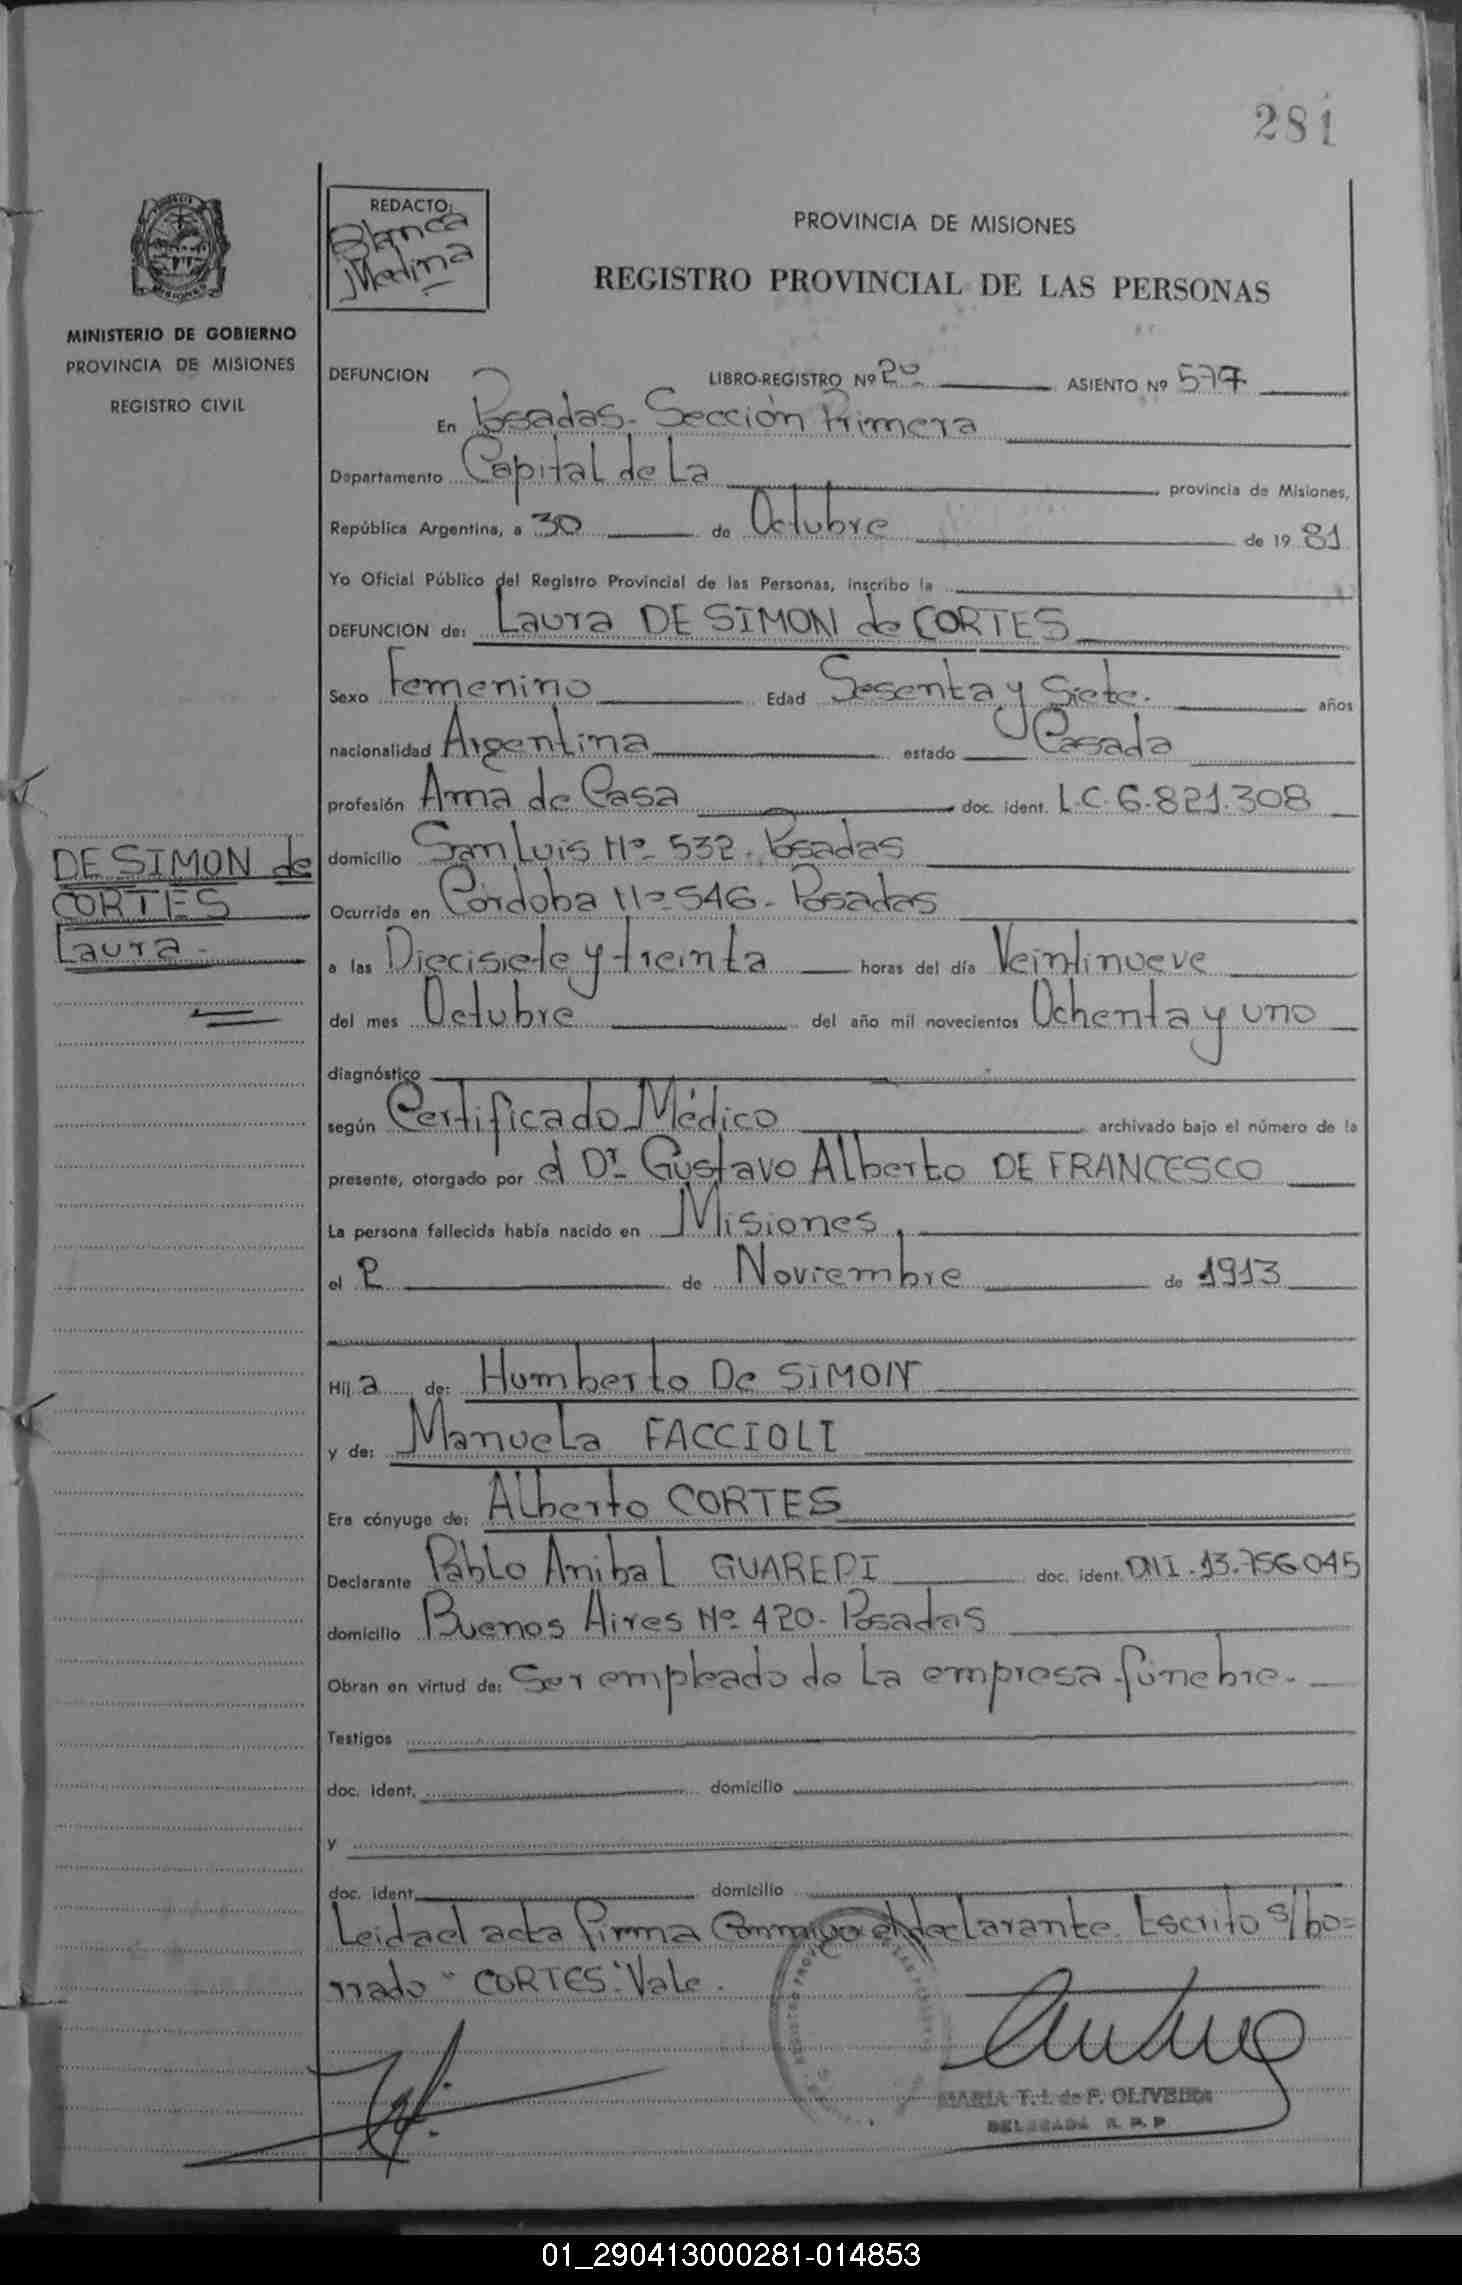 281
REDACTO:
Blanca
Medina
PROVINCIA DE MISIONES
REGISTRO PROVINCIAL DE LAS PERSONAS
MINISTERIO DE GOBIERNO
PROVINCIA DE MISIONES
REGISTRO CIVIL
DEFUNCION LIBRO-REGISTRO Nº 2º ASIENTO Nº 577
En Posadas - Sección Primera
Departamento Capital de La provincia de Misiones,
República Argentina, a 30 de Octubre de 19 81
Yo Oficial Público del Registro Provincial de las Personas, inscribo la
DEFUNCION de: Laura DE SIMON de CORTES
Sexo Femenino Edad Sesenta y Siete. años
nacionalidad Argentina estado Casada
profesión Ama de Casa doc. ident. L.C. 6.821.308
domicilio San Luis Nº 532 - Posadas
DE SIMON de
CORTES
Laura -
Ocurrida en Córdoba Nº 546 - Posadas
a las Diecisiete y treinta horas del día Veintinueve
del mes Octubre del año mil novecientos Ochenta y uno
diagnóstico
según Certificado Médico archivado bajo el número de la
presente, otorgado por el Dr Gustavo Alberto DE FRANCESCO
La persona fallecida había nacido en Misiones,
el 2 de Noviembre de 1913
Hij a de: Humberto De SIMON
y de: Manuela FACCIOLI
Era cónyuge de: Alberto CORTES
Declarante Pablo Anibal GUAREPI doc. ident. DNI. 13.756.045
domicilio Buenos Aires Nº 420 - Posadas
Obran en virtud de: Ser empleado de La empresa fúnebre.
Testigos
doc. ident. domicilio
y
doc. ident. domicilio
Leida el acta firma Conmigo el declarante. Escrito s/bo=
rrado "CORTES": Vale.
MARIA T. I. de F. OLIVEIRA
DELEGADA R. P. P.
01_290413000281-014853